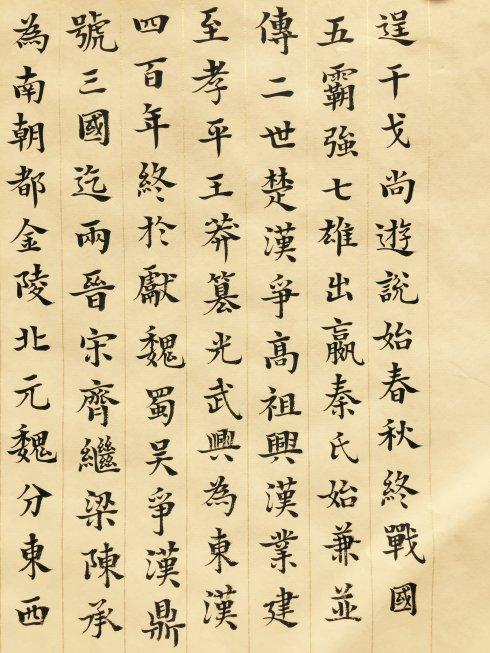 逞干戈尚遊說始春秋終戰國
五霸強七雄出嬴秦氏始兼並
傳二世楚漢爭高祖興漢業建
至孝平王莽篡光武興為東漢
四百年終於獻魏蜀吳爭漢鼎
號三國迄兩晉宋齊繼梁陳承
為南朝都金陵北元魏分東西